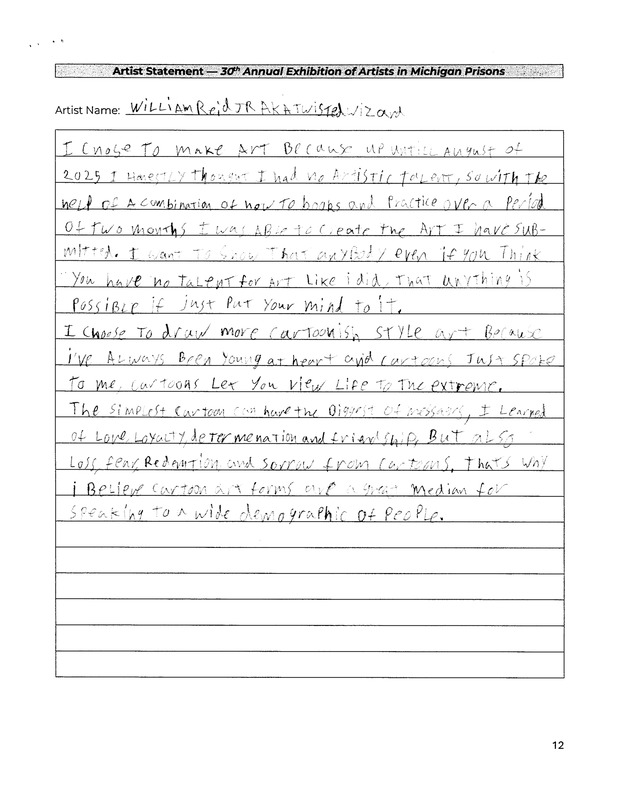 Artist Statement — 30th Annual Exhibition of Artists in Michigan Prisons
Artist Name: William Reid JR AKA Twisted Wizard
I Chose To make Art Because up untill August of
2025 I Honestly Thought I had no Artistic talent, so with the
help of A combination of how To books and Practice over a Period
Of two months I was ABle to Create the Art I have SUB-
mitted. I want To Show That anyBody even if you Think
You have no talent for Art Like i did, That anything is
Possible if just Put Your mind to it.
I Choose To draw more cartoonish STYLe art Because
i've Always Been Young at heart and cartoons Just Spoke
To me, cartoons Let You view Life To The extreme.
The Simplest Cartoon can have the Biggest Of messages, I Learned
of Love, Loyalty, determenation and friendship, But also
Loss, fear, Redemtion and sorrow from cartoons, That's why
i Believe cartoon art forms are a great Median for
Speaking To a wide demographic Of People.
12